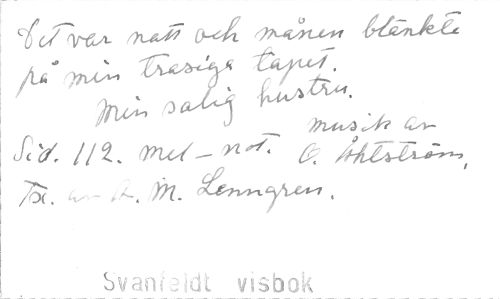 Det var natt och månen blänkte
på min trasiga tapet.
Min salig hustru.
musik av
Sid. 112. mel-not. O. Åhlström,
Tx. av A. M. Lenngren.
Svanfeldt visbok